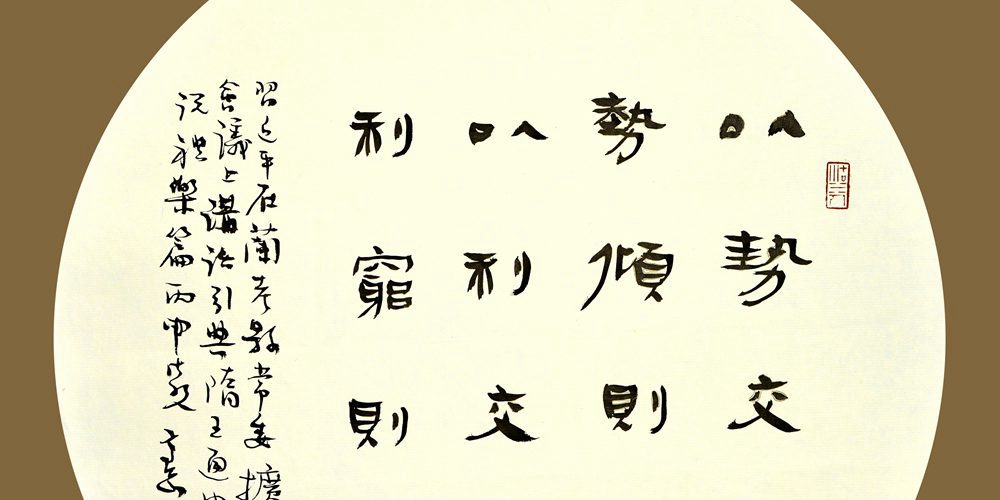 以勢交
勢傾則
以利交
利窮則
習近平在蘭考縣常委擴
會議上講話引典隋王通中
説禮樂篇丙申